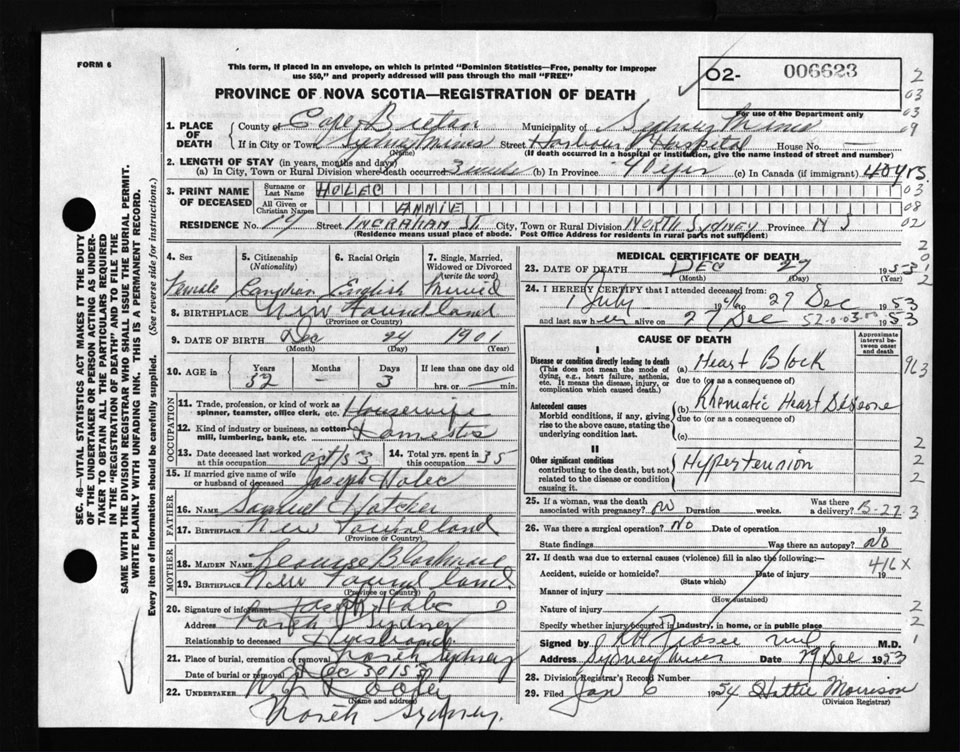 FORM 6
This form, if placed in an envelope, on which is printed "Dominion Statistics—Free, penalty for improper
use $50," and properly addressed will pass through the mail "FREE"
PROVINCE OF NOVA SCOTIA—REGISTRATION OF DEATH
02- 006623
For use of the Department only
1. PLACE OF DEATH
County of Cape Breton Municipality of Sydney Mines
If in City or Town Sydney Mines Street Harbour V. Hospital House No. —
(Name) (If death occurred in a hospital or institution, give the name instead of street and number)
2. LENGTH OF STAY (in years, months and days)
(a) In City, Town or Rural Division where death occurred 3 (b) In Province 40 yrs (c) In Canada (if immigrant) 40 yrs.
3. PRINT NAME OF DECEASED
Surname or Last Name HOLEC
All Given or Christian Names ANNIE
RESIDENCE No. 14 Street INGRAHAM ST. City, Town or Rural Division NORTH SYDNEY Province N S
(Residence means usual place of abode. Post Office Address for residents in rural parts not sufficient)
4. Sex Female
5. Citizenship (Nationality) Canadian
6. Racial Origin English
7. Single, Married, Widowed or Divorced (write the word) Married
8. BIRTHPLACE New Foundland
(Province or Country)
9. DATE OF BIRTH Dec 24 1901
(Month) (Day) (Year)
10. AGE in Years 52 Months – Days 3 If less than one day old hrs. or — min.
OCCUPATION
11. Trade, profession, or kind of work as spinner, teamster, office clerk, etc. Housewife
12. Kind of industry or business, as cotton-mill, lumbering, bank, etc. Domestic
13. Date deceased last worked at this occupation Oct/53
14. Total yrs. spent in this occupation 35
15. If married give name of wife or husband of deceased Joseph Holec
FATHER
16. Name Samuel Hatcher
17. Birthplace New Foundland
(Province or Country)
MOTHER
18. Maiden Name
19. Birthplace New Foundland
(Province or Country)
20. Signature of informant Joseph Holec
Address North Sydney
Relationship to deceased Husband
21. Place of burial, cremation or removal North Sydney
Date of burial or removal Dec 30/53
22. UNDERTAKER
(Name and address)
North Sydney.
MEDICAL CERTIFICATE OF DEATH
23. DATE OF DEATH DEC 27 1953
(Month) (Day)
24. I HEREBY CERTIFY that I attended deceased from:
1 July to 27 Dec 1953
and last saw her alive on 27 Dec 52-0-03-00 1953
CAUSE OF DEATH
Approximate interval between onset and death
I
Disease or condition directly leading to death
(This does not mean the mode of dying, e.g., heart failure, asthenia, etc. It means the disease, injury, or complication which caused death.)
(a) Heart Block
due to (or as a consequence of)
Antecedent causes
Morbid conditions, if any, giving rise to the above cause, stating the underlying condition last.
(b) Rhematic Heart Disease
due to (or as a consequence of)
(c)
II
Other significant conditions
contributing to the death, but not related to the disease or condition causing it.
Hypertension
25. If a woman, was the death associated with pregnancy? no Duration weeks. Was there a delivery? B-27
26. Was there a surgical operation? NO Date of operation 19
State findings Was there an autopsy? NO
27. If death was due to external causes (violence) fill in also the following:—
416X
Accident, suicide or homicide? Date of injury 19
(State which)
Manner of injury
(How sustained)
Nature of injury
Specify whether injury occurred in industry, in home, or in public place
Signed by M.D.
Address Sydney Mines Date 29 Dec 1953
28. Division Registrar's Record Number
29. Filed Jan 6 1954 Hattie Morrison
(Division Registrar)
SEC. 46—VITAL STATISTICS ACT MAKES IT THE DUTY
OF THE UNDERTAKER OR PERSON ACTING AS UNDER-
TAKER TO OBTAIN ALL THE PARTICULARS REQUIRED
IN THE "REGISTRATION OF DEATH" AND TO FILE THE
SAME WITH THE DIVISION REGISTRAR WHO SHALL ISSUE THE BURIAL PERMIT.
WRITE PLAINLY WITH UNFADING INK. THIS IS A PERMANENT RECORD.
Every item of information should be carefully supplied. (See reverse side for instructions.)
2
03
03
09
03
08
02
2
0
1
2
963
2
2
2
3
2
2
1
3